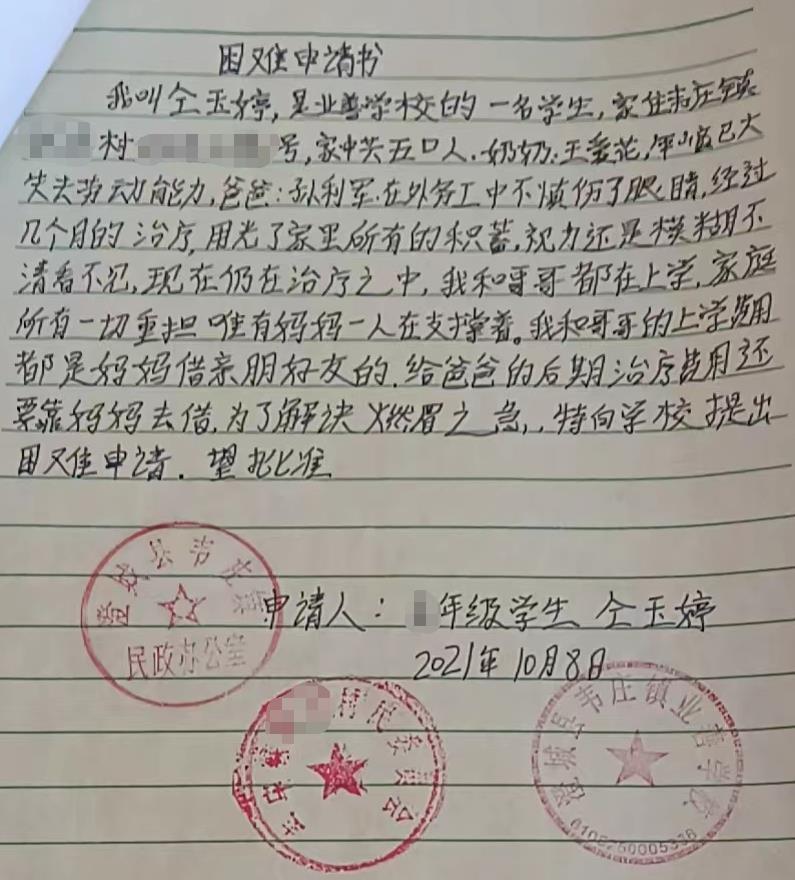 困难申请书
我叫仝玉婷,是业善学校的一名学生,家住韦庄镇
村 号,家中共五口人.奶奶:王 花,年龄已大
失去劳动能力,爸爸:孙利军.在外务工中不慎伤了眼睛,经过
几个月的治疗,用光了家里所有的积蓄,视力还是模糊不
清看不见,现在仍在治疗之中,我和哥哥都在上学,家庭
所有一切重担唯有妈妈一人在支撑着。我和哥哥的上学费用
都是妈妈借亲朋好友的.给爸爸的后期治疗费用还
要靠妈妈去借,为了解决燃眉之急,.特向学校提出
困难申请.望批准
澄城县韦庄镇
民政办公室
申请人: 年级学生 仝玉婷
2021年10月8日
村民委员会
澄城县韦庄镇业善学校